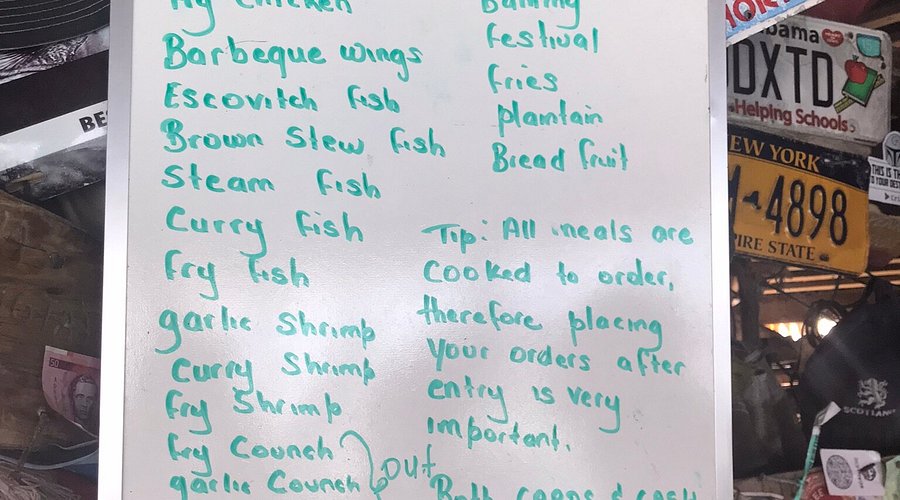 Fry Chicken
Barbeque wings
Escovitch fish
Brown Stew fish
Steam fish
Curry fish
fry fish
garlic Shrimp
Curry Shrimp
fry Shrimp
fry Counch
garlic Counch
out
festival
fries
plantain
Bread fruit
Tip: All meals are
cooked to order,
therefore placing
your orders after
entry is very
important.
Both
bama
DXTD
Helping Schools
NEW YORK
4898
PIRE STATE
THIS IS TH
SCOTLAND
BE
50